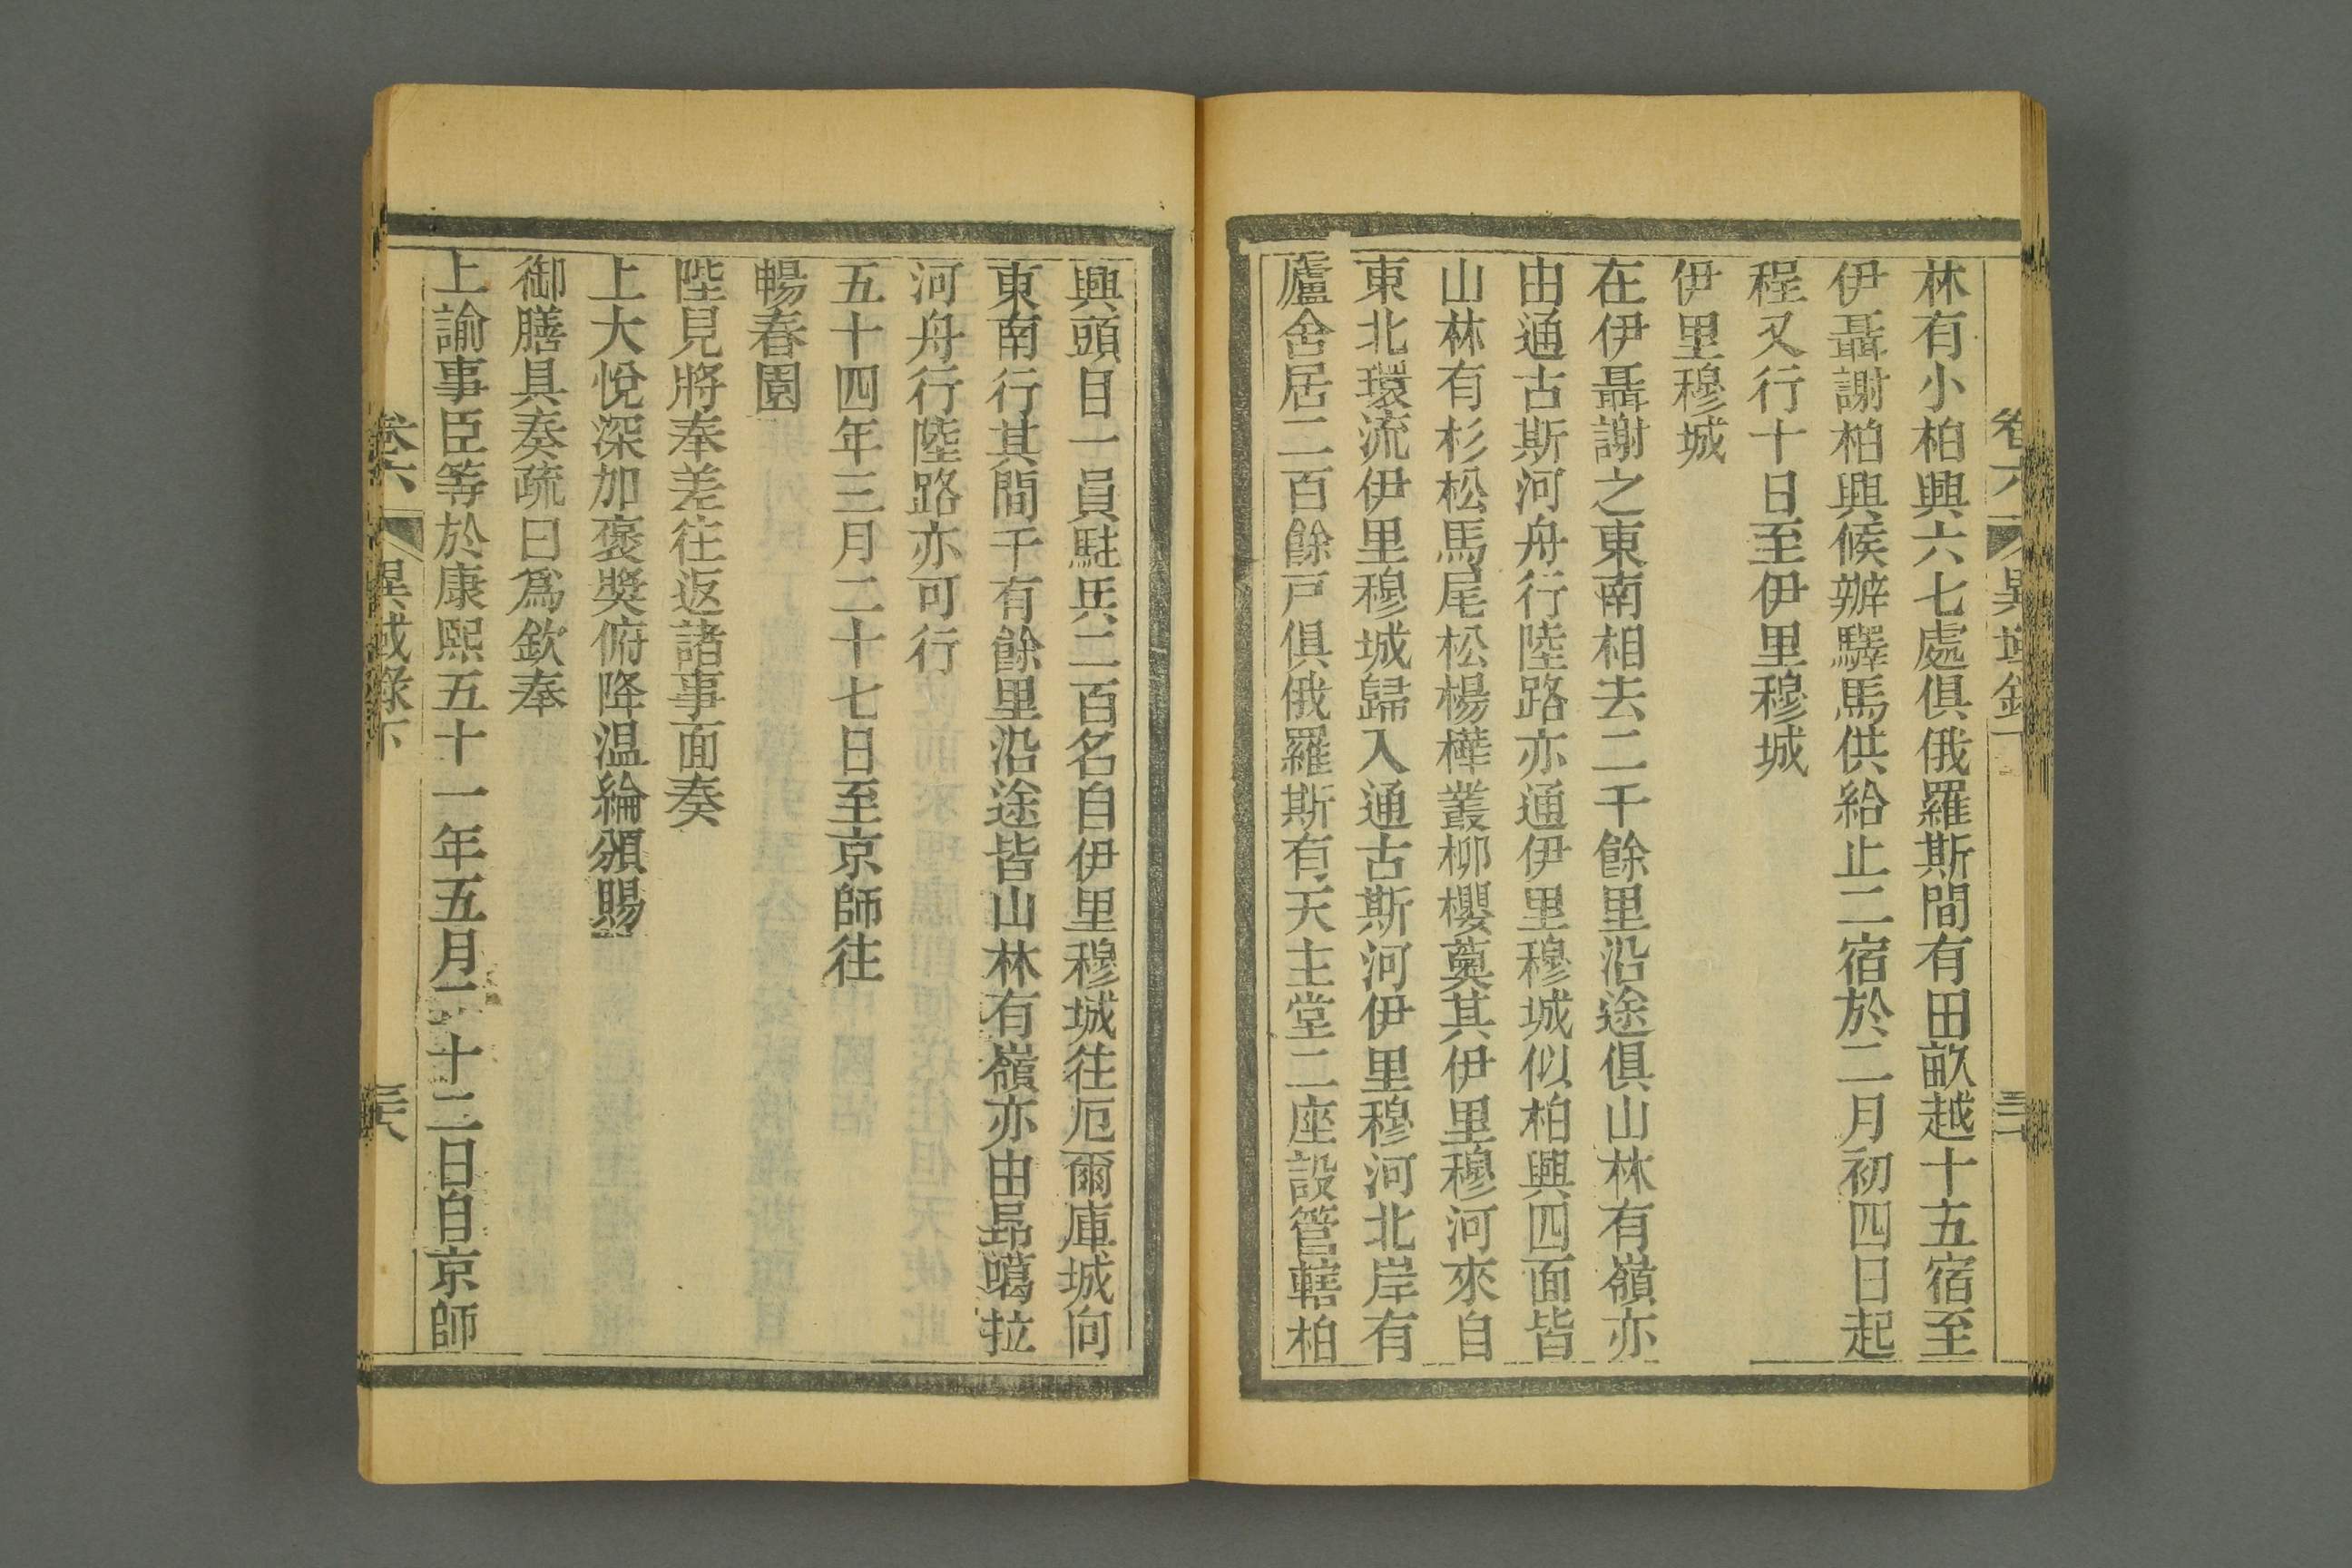 林有小柏興六七處俱俄羅斯間有田畝越十五宿至
伊聶謝柏興候辦驛馬供給止二宿於二月初四日起
程又行十日至伊里穆城
伊里穆城
在伊聶謝之東南相去二千餘里沿途俱山林有嶺亦
由通古斯河舟行陸路亦通伊里穆城似柏興四面皆
山林有杉松馬尾松楊樺叢柳櫻薁其伊里穆河來自
東北環流伊里穆城歸入通古斯河伊里穆河北岸有
廬舍居二百餘戸俱俄羅斯有天主堂二座設管轄柏
興頭目一員駐兵二百名自伊里穆城往厄爾庫城向
東南行其間千有餘里沿途皆山林有嶺亦由昂噶拉
河舟行陸路亦可行
五十四年三月二十七日至京師往
暢春園
陛見將奉差往返諸事面奏
上大悅深加褒獎俯降温綸頒賜
御膳具奏疏曰爲欽奉
上諭事臣等於康熙五十一年五月二十二日自京師
卷六 異域錄下